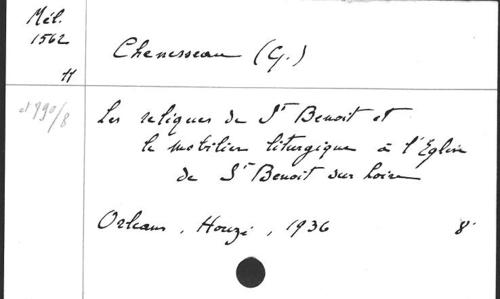 Mél.
1562
H
Chenesseau (G.)
d 990/8
Les reliques de St Benoit et
le mobilier liturgique à l'Eglise
de St Benoit sur Loire
Orléans, Houzé, 1936 8°